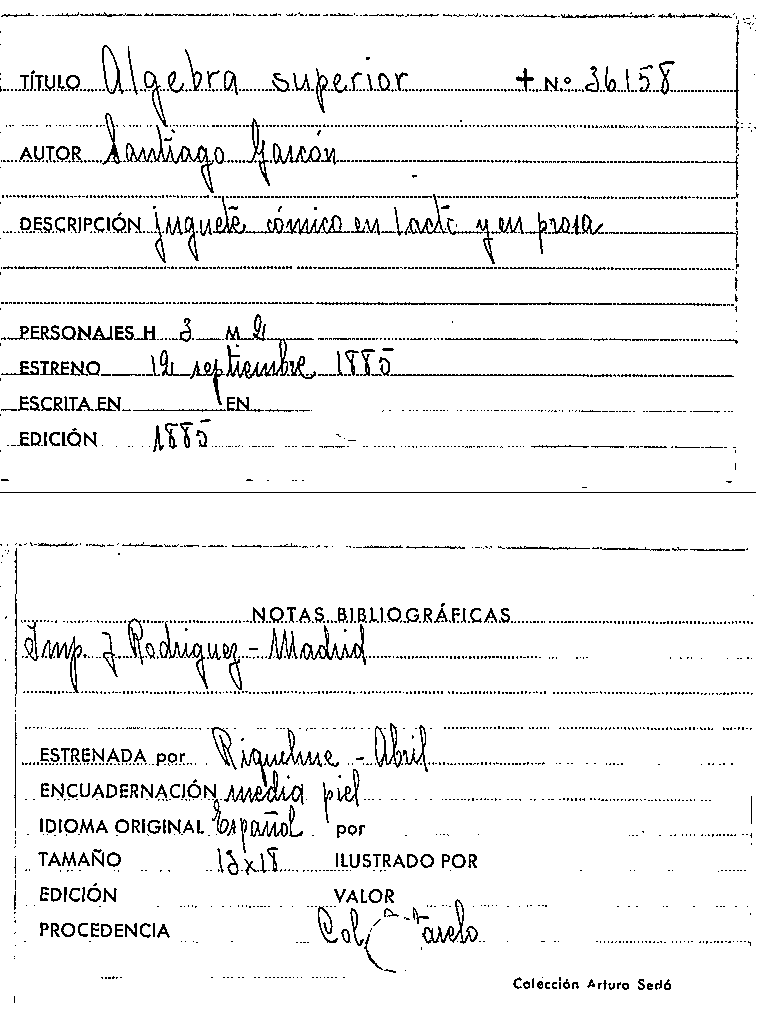 TÍTULO Algebra superior + Nº 36158
AUTOR Santiago Gascón
DESCRIPCIÓN juguete cómico en 1 acto y en prosa
PERSONAJES H 3 M 2
ESTRENO 12 septiembre 1885
ESCRITA EN EN
EDICIÓN 1885
NOTAS BIBLIOGRÁFICAS
Imp. J Rodriguez - Madrid
ESTRENADA por Riquelme - Abril
ENCUADERNACIÓN media piel
IDIOMA ORIGINAL Español por
TAMAÑO 13x18 ILUSTRADO POR
EDICIÓN VALOR
PROCEDENCIA Col. Cotarelo
Colección Arturo Sedó